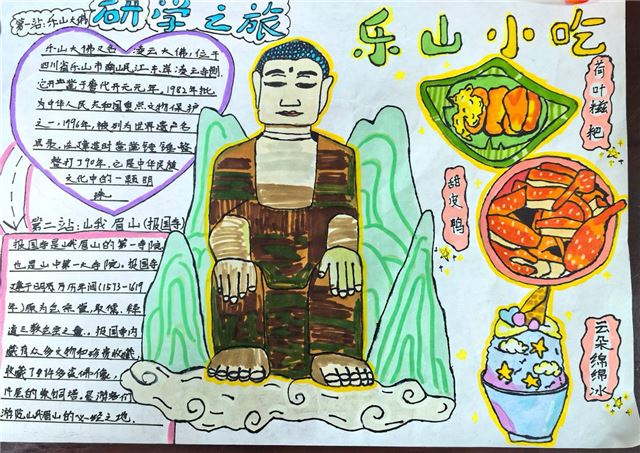 第一站：乐山大佛
研学之旅
乐山小吃
乐山大佛又名凌云大佛，位于
四川省乐山市南岷江东岸凌云寺侧
它开凿于唐代开元元年，1982年批
为中华人民共和国重点文物保护
之一，1996年，被列为世界遗产名
录，在建造时凿凿锤锤，整
整打了90年，它是中华民族
文化中的一颗明
珠。
第二站：山峨眉山（报国寺）
报国寺是峨眉山的第一寺院
也是山中第一大寺院。报国寺
建于明万历年间（1573—1619
年）原为会宗堂，取儒、释
道三教会宗之意。报国寺内
藏有众多文物和珍贵收藏
游览山峨眉山的必经之地。
荷叶糍粑
甜皮鸭
云朵绵绵冰